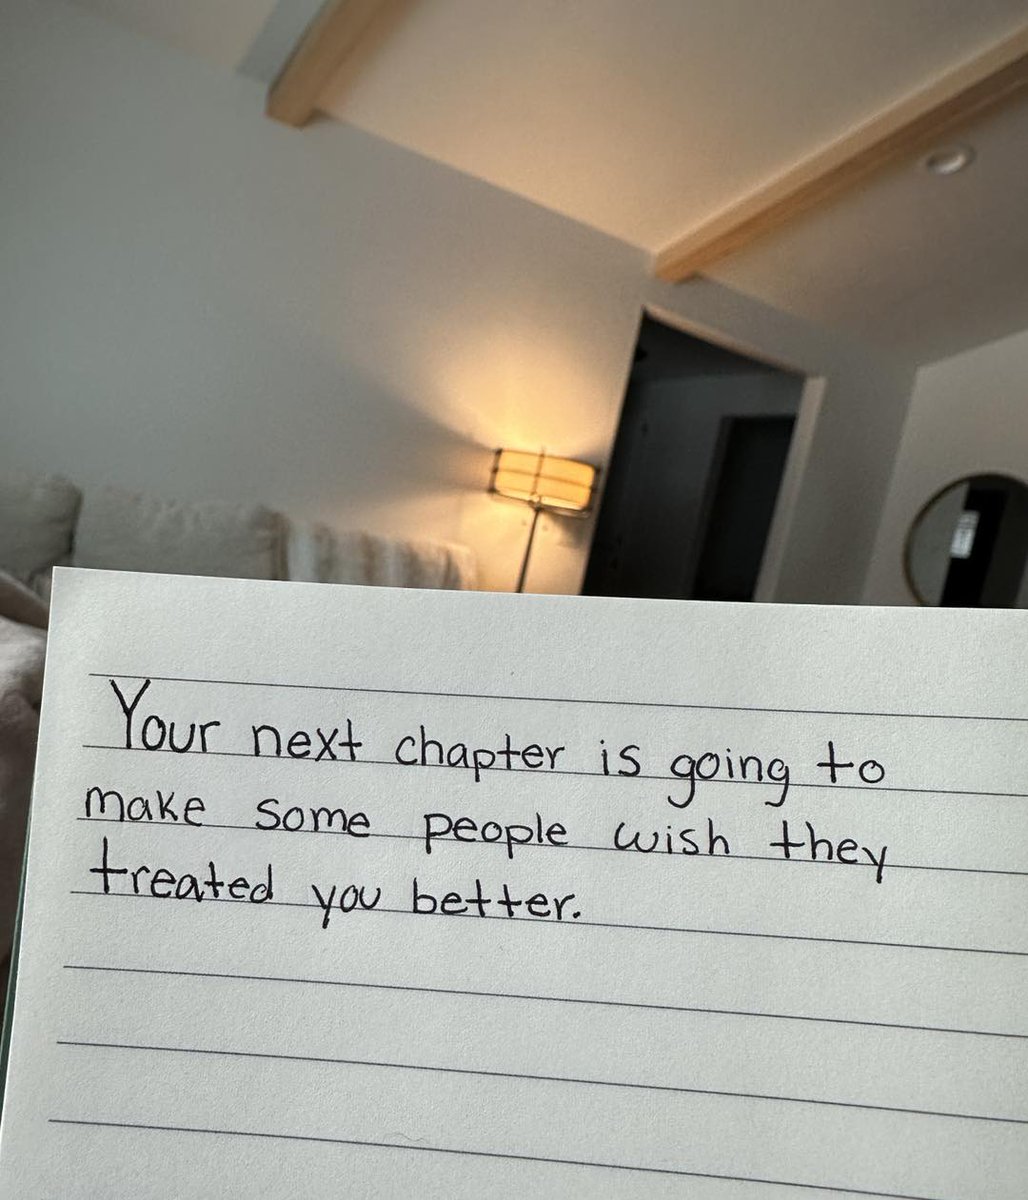 Your next chapter is going to
make some people wish they
treated you better.